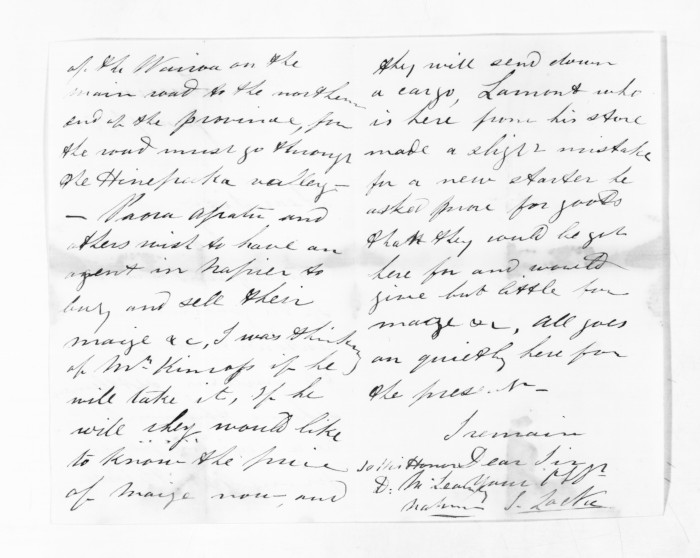 of the Wairoa on the
main road to the northern
end of the province, for
the road must go through
the Hinepaka valley –
– Paora Apatu and
others wish to have an
agent in Napier to
buy and sell their
maize &c, I was thinking
of Mr Kinross if he
will take it, If he
will they would like
to know the price
of maize now – and
they will send down
a cargo, Lamont who
is here from his store
made a slight mistake
for a new starter he
asked more for goods
than they could be got
here for and would
give but little for
maize &c, All goes
on quietly here for
the present –
I remain
Dear Sir
To His Honor
D. McLean
Napier
Your
S. Locke